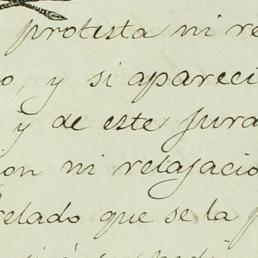 protesta ni re
o, y si apareci
y de este Jura
on ni relajacio
relado que se la p